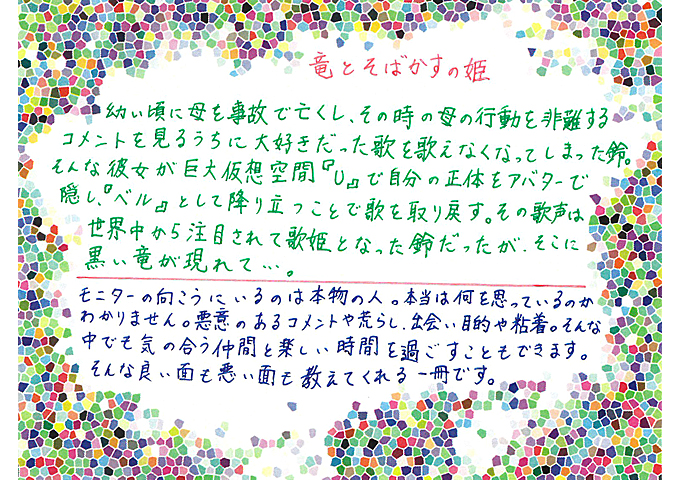 竜とそばかすの姫
幼い頃に母を事故で亡くし、その時の母の行動を非難する
コメントを見るうちに大好きだった歌を歌えなくなってしまった鈴。
そんな彼女が巨大仮想空間『U』で自分の正体をアバターで
隠し、『ベル』として降り立つことで歌を取り戻す。その歌声は
世界中から注目されて歌姫となった鈴だったが、そこに
黒い竜が現れて…。
モニターの向こうにいるのは本物の人。本当は何を思っているのか
わかりません。悪意のあるコメントや荒らし、出会い目的や粘着。そんな
中でも気の合う仲間と楽しい時間を過ごすこともできます。
そんな良い面も悪い面も教えてくれる一冊です。